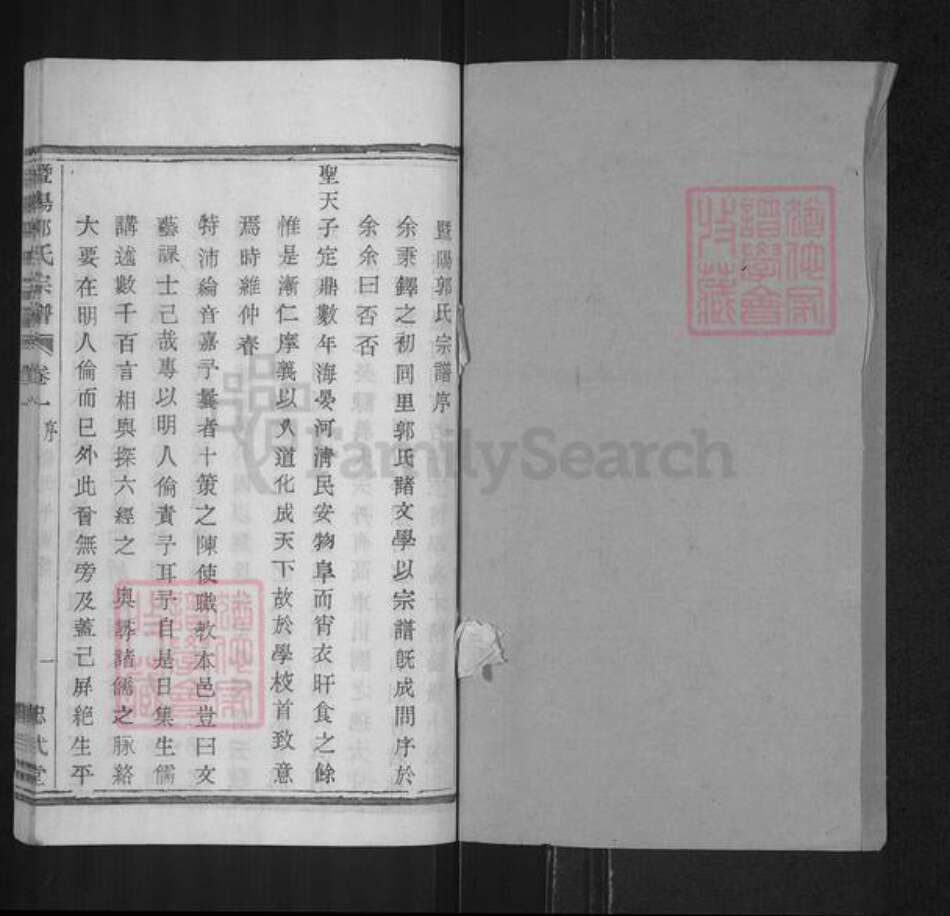 暨陽郭氏宗譜序
余秉鐸之初同里郭氏諸文學以宗譜旣成問序於
余余曰否否
聖天子定鼎數年海晏河淸民安物阜而宵衣旰食之餘
惟是漸仁摩義以人道化成天下故於學校首致意
焉時維仲春
特沛綸音嘉予曩者十策之陳使職敎本邑豈曰文
藝課士己哉專以明人倫責予耳予自是日集生儒
講述數千百言相與探六經之奧諸儒之脉絡
大要在明人倫而已外此啻無旁及蓋己屏絶生平
暨陽郭氏宗譜 卷一 序 一 忠武堂
FamilySearch